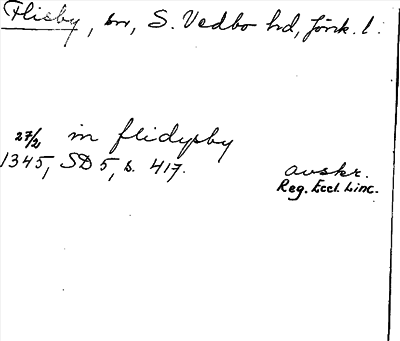 Flisby, sn, S. Vedbo hd, Jönk. l.
27/2 in flidysby
1345, SD 5, s. 417.
avskr.
Reg. Eccl. Linc.